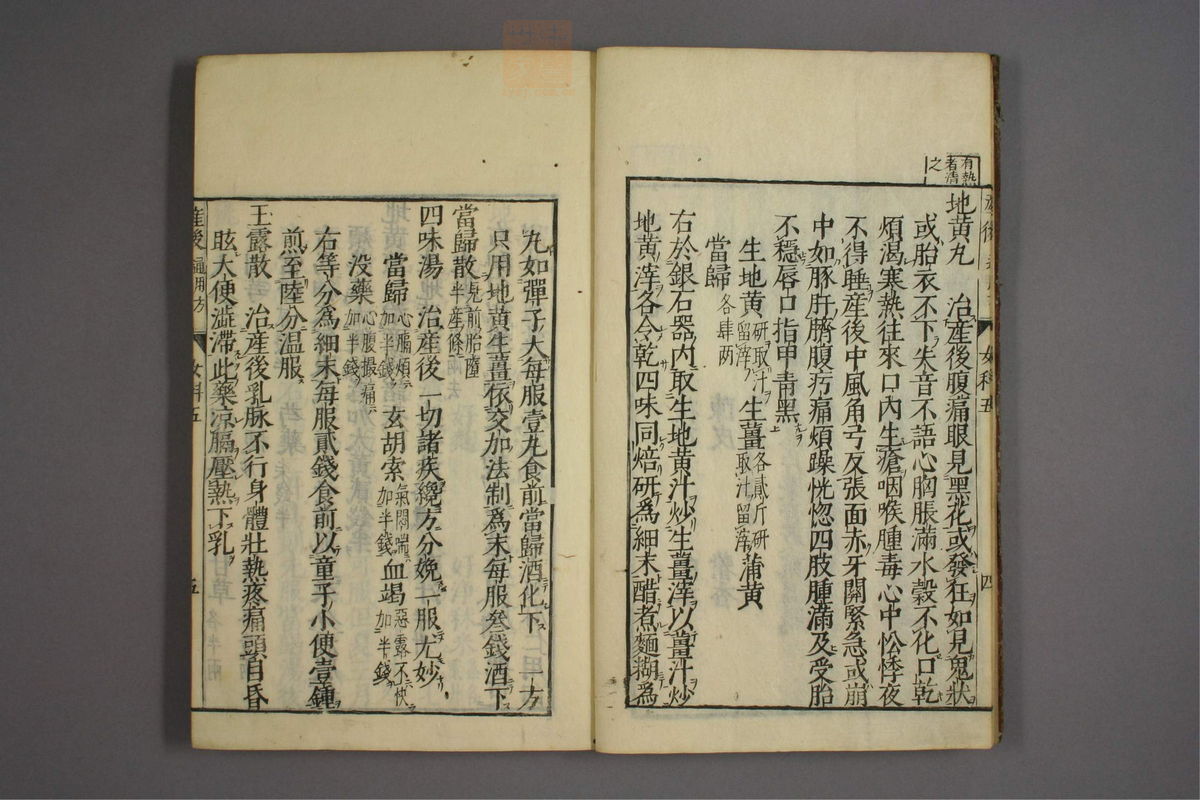 有熱
者清
之
地黄丸　治産後腹痛眼見黒花或發狂如見鬼狀
或胎衣不下失音不語心胸脹滿水穀不化口乾
煩渇寒熱往來口內生瘡咽喉腫毒心中忪悸夜
不得睡産後中風角弓反張面赤牙關緊急或崩
中如豚肝臍腹㽲痛煩躁恍惚四肢腫滿及受胎
不穩唇口指甲青黑
生地黄研取汁留滓　生薑各貳斤研取汁留滓　蒲黄
當歸各肆两
右於銀石器內取生地黄汁炒生薑滓以薑汁炒
地黄滓各令乾四味同焙研爲細末醋煮麵糊爲
女科五
四
丸如彈子大每服壹丸食前當歸酒化下一方
只用地黄生薑依交加法制爲末每服叁錢酒下
當歸散見前胎墮半産條
四味湯　治産後一切諸疾纔方分娩一服尤妙
當歸心膈煩加半錢　玄胡索氣悶喘加半錢　血竭惡露不快加半錢
没藥心腹撮痛加半錢
右等分爲細末每服貳錢食前以童子小便壹鍾
煎至陸分温服
玉露散　治産後乳脉不行身體壯熱疼痛頭目昏
眩大便澁滯此藥凉膈壓熱下乳
産後通用方
女科五
五